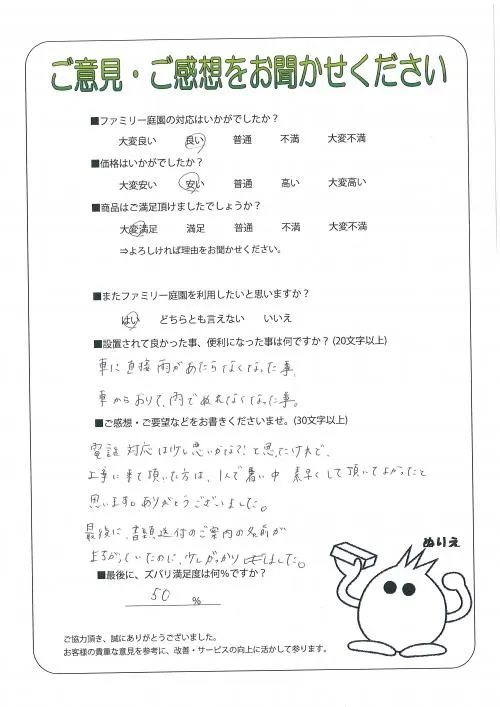 ご意見・ご感想をお聞かせください
■ファミリー庭園の対応はいかがでしたか？
大変良い 良い 普通 不満 大変不満
■価格はいかがでしたか？
大変安い 安い 普通 高い 大変高い
■商品はご満足頂けましたでしょうか？
大変満足 満足 普通 不満 大変不満
⇒よろしければ理由をお聞かせください。
■またファミリー庭園を利用したいと思いますか？
はい どちらとも言えない いいえ
■設置されて良かった事、便利になった事は何ですか？(20文字以上)
車に直接雨があたらなくなった事、
車からおりて、雨でぬれなくなった事。
■ご感想・ご要望などをお書きくださいませ。(30文字以上)
電話対応は少し悪いかな?!と思ったけれど、
工事に来て頂いた方は、1人で暑い中 素早くして頂いてよかったと
思います。ありがとうございました。
最後に、書類送付のご案内の名前が
まちがっていたのに、少しがっかりしました。
■最後に、ズバリ満足度は何%ですか？
50 %
ぬりえ
ご協力頂き、誠にありがとうございました。
お客様の貴重な意見を参考に、改善・サービスの向上に活かして参ります。